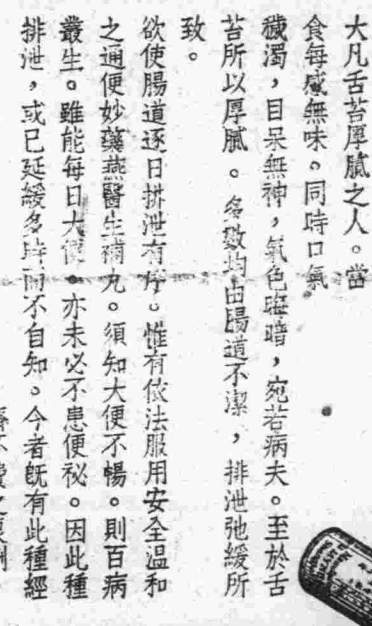 大凡舌苔厚膩之人。當
食每感無味。同時口氣
穢濁，目呆無神，氣色晦暗，宛若病夫。至於舌
苔所以厚膩。多數均由腸道不潔，排泄弛緩所
致。
欲使腸道逐日排泄有序。惟有依法服用安全溫和
之通便妙藥燕醫生補丸。須知大便不暢。則百病
叢生。雖能每日大便。亦未必不患便祕。因此種
排泄，或已延緩多時而不自知。今者既有此種經